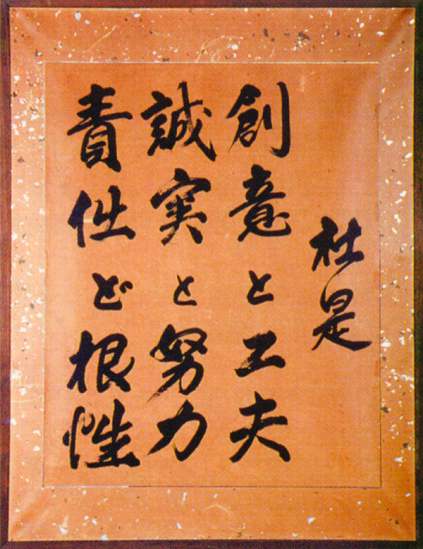 社是
創意と工夫
誠実と努力
責任と根性